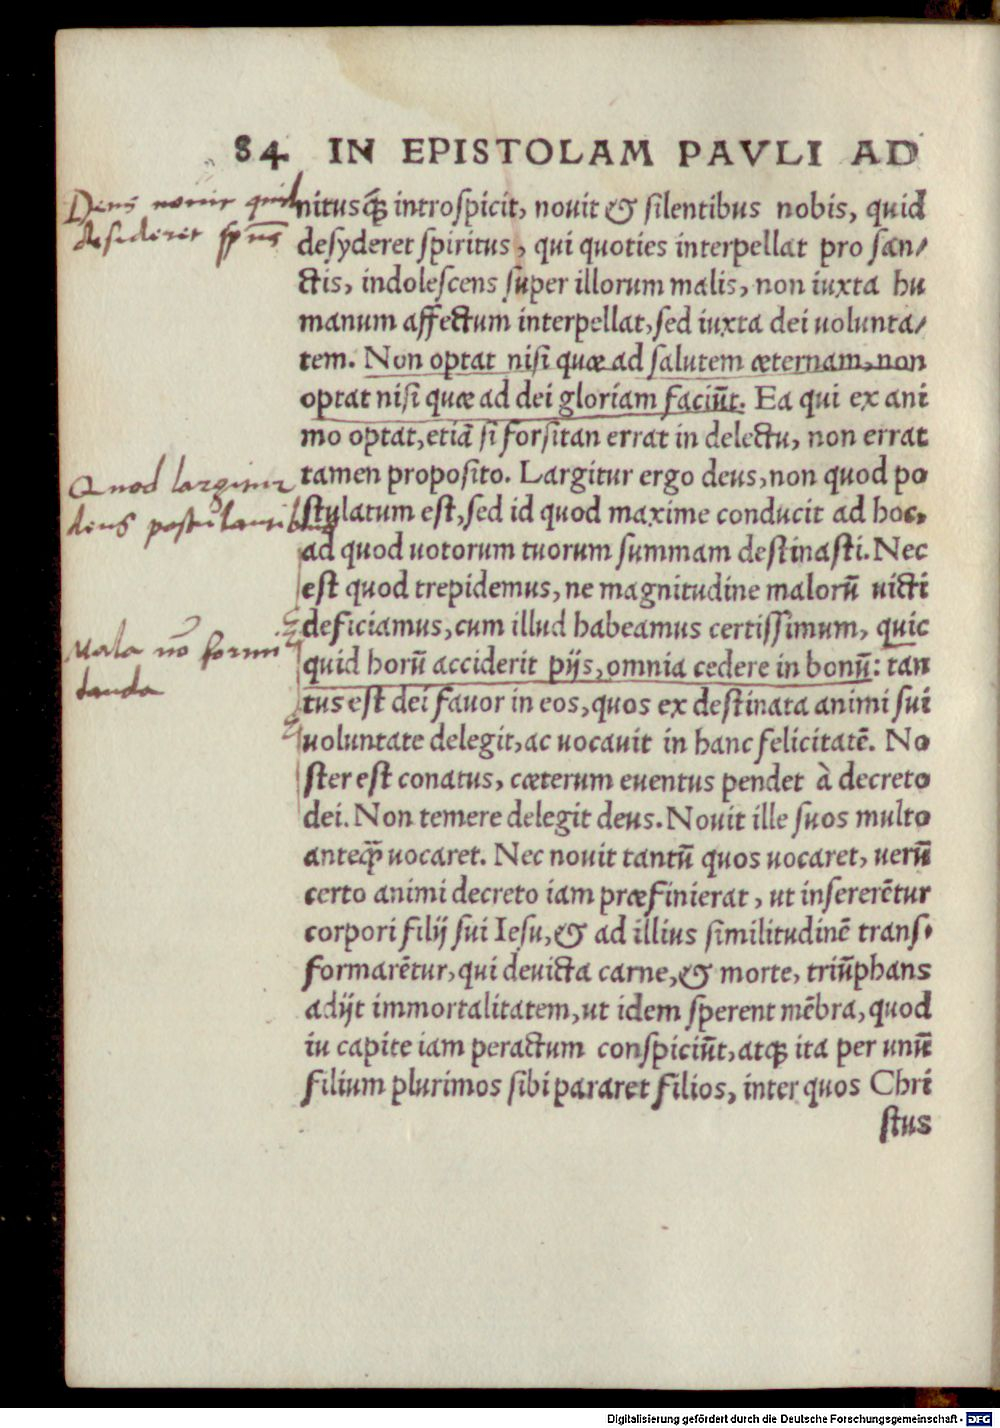 84 IN EPISTOLAM PAVLI AD
Deus nouit quid
desideret sp̃us
nitusq́; introspicit, nouit & silentibus nobis, quid
desyderet spiritus, qui quoties interpellat pro san/
ctis, indolescens super illorum malis, non iuxta hu
manum affectum interpellat, sed iuxta dei uolunta/
tem. Non optat nisi quæ ad salutem æternam, non
optat nisi quæ ad dei gloriam faciũt. Ea qui ex ani
mo optat, etiã si forsitan errat in delectu, non errat
tamen proposito. Largitur ergo deus, non quod po
Quod largitur
deus postulantibus
stulatum est, sed id quod maxime conducit ad hoc,
ad quod uotorum tuorum summam destinasti. Nec
est quod trepidemus, ne magnitudine malorũ uicti
deficiamus, cum illud habeamus certissimum, quic
Mala nõ formi
danda
quid horũ acciderit pijs, omnia cedere in bonũ: tan
tus est dei fauor in eos, quos ex destinata animi sui
uoluntate delegit, ac uocauit in hanc felicitatẽ. No
ster est conatus, cæterum euentus pendet à decreto
dei. Non temere delegit deus. Nouit ille suos multo
anteq̃ uocaret. Nec nouit tantũ quos uocaret, uerũ
certo animi decreto iam præfinierat, ut insererẽtur
corpori filij sui Iesu, & ad illius similitudinẽ trans-
formarẽtur, qui deuicta carne, & morte, triũphans
adijt immortalitatem, ut idem sperent mẽbra, quod
iu capite iam peractum conspiciũt, atq; ita per unũ
filium plurimos sibi pararet filios, inter quos Chri
stus
Digitalisierung gefördert durch die Deutsche Forschungsgemeinschaft - DFG